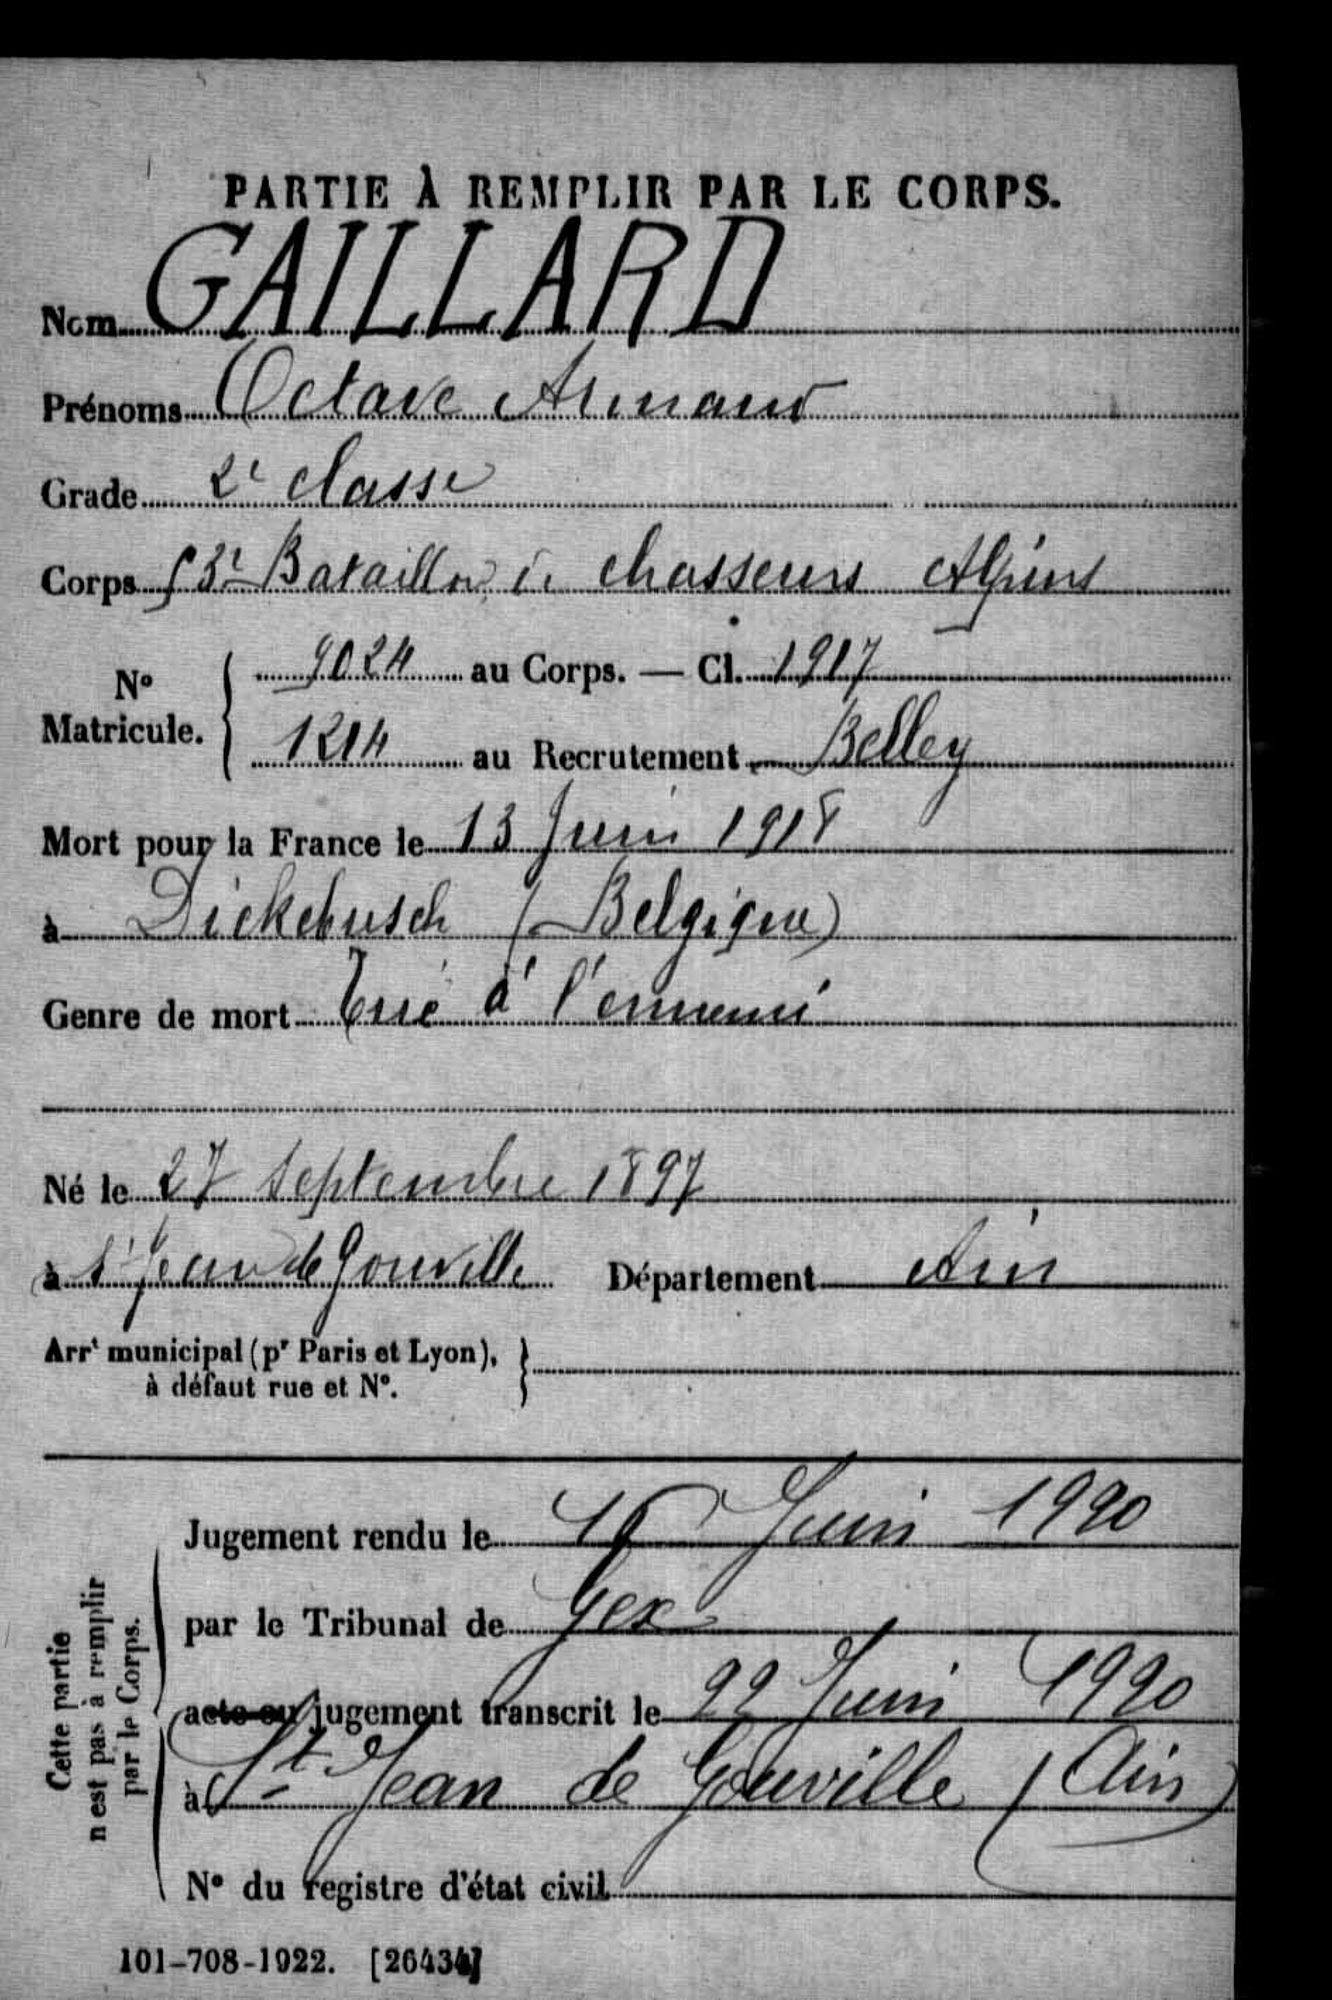 PARTIE À REMPLIR PAR LE CORPS.
Nom GAILLARD
Prénoms Octave Armand
Grade 2e classe
Corps 53e Bataillon de chasseurs Alpins
No Matricule. 9024 au Corps. — Cl. 1917
1214 au Recrutement Belley
Mort pour la France le 13 Juin 1918
à Dickebusch (Belgique)
Genre de mort Tué à l'ennemi
Né le 27 Septembre 1897
à St Jean de Gonville Département Ain
Arrt municipal (pr Paris et Lyon),
à défaut rue et No.
Cette partie
n'est pas à remplir
par le Corps.
Jugement rendu le Juin 1920
par le Tribunal de Gex
acte ou jugement transcrit le 22 Juin 1920
à St Jean de Gonville (Ain)
No du registre d'état civil
101-708-1922. [26434]